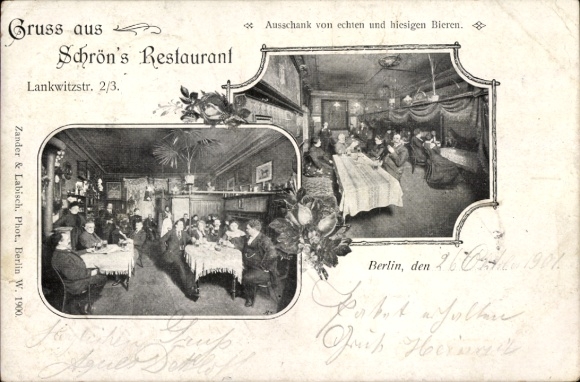 Gruss aus
Schrön's Restaurant
Lankwitzstr. 2/3.
Ausschank von echten und hiesigen Bieren.
Zander & Labisch, Phot., Berlin W. 1900.
Berlin, den 26
Paket erhalten
Gruß
Gruß
Agnes